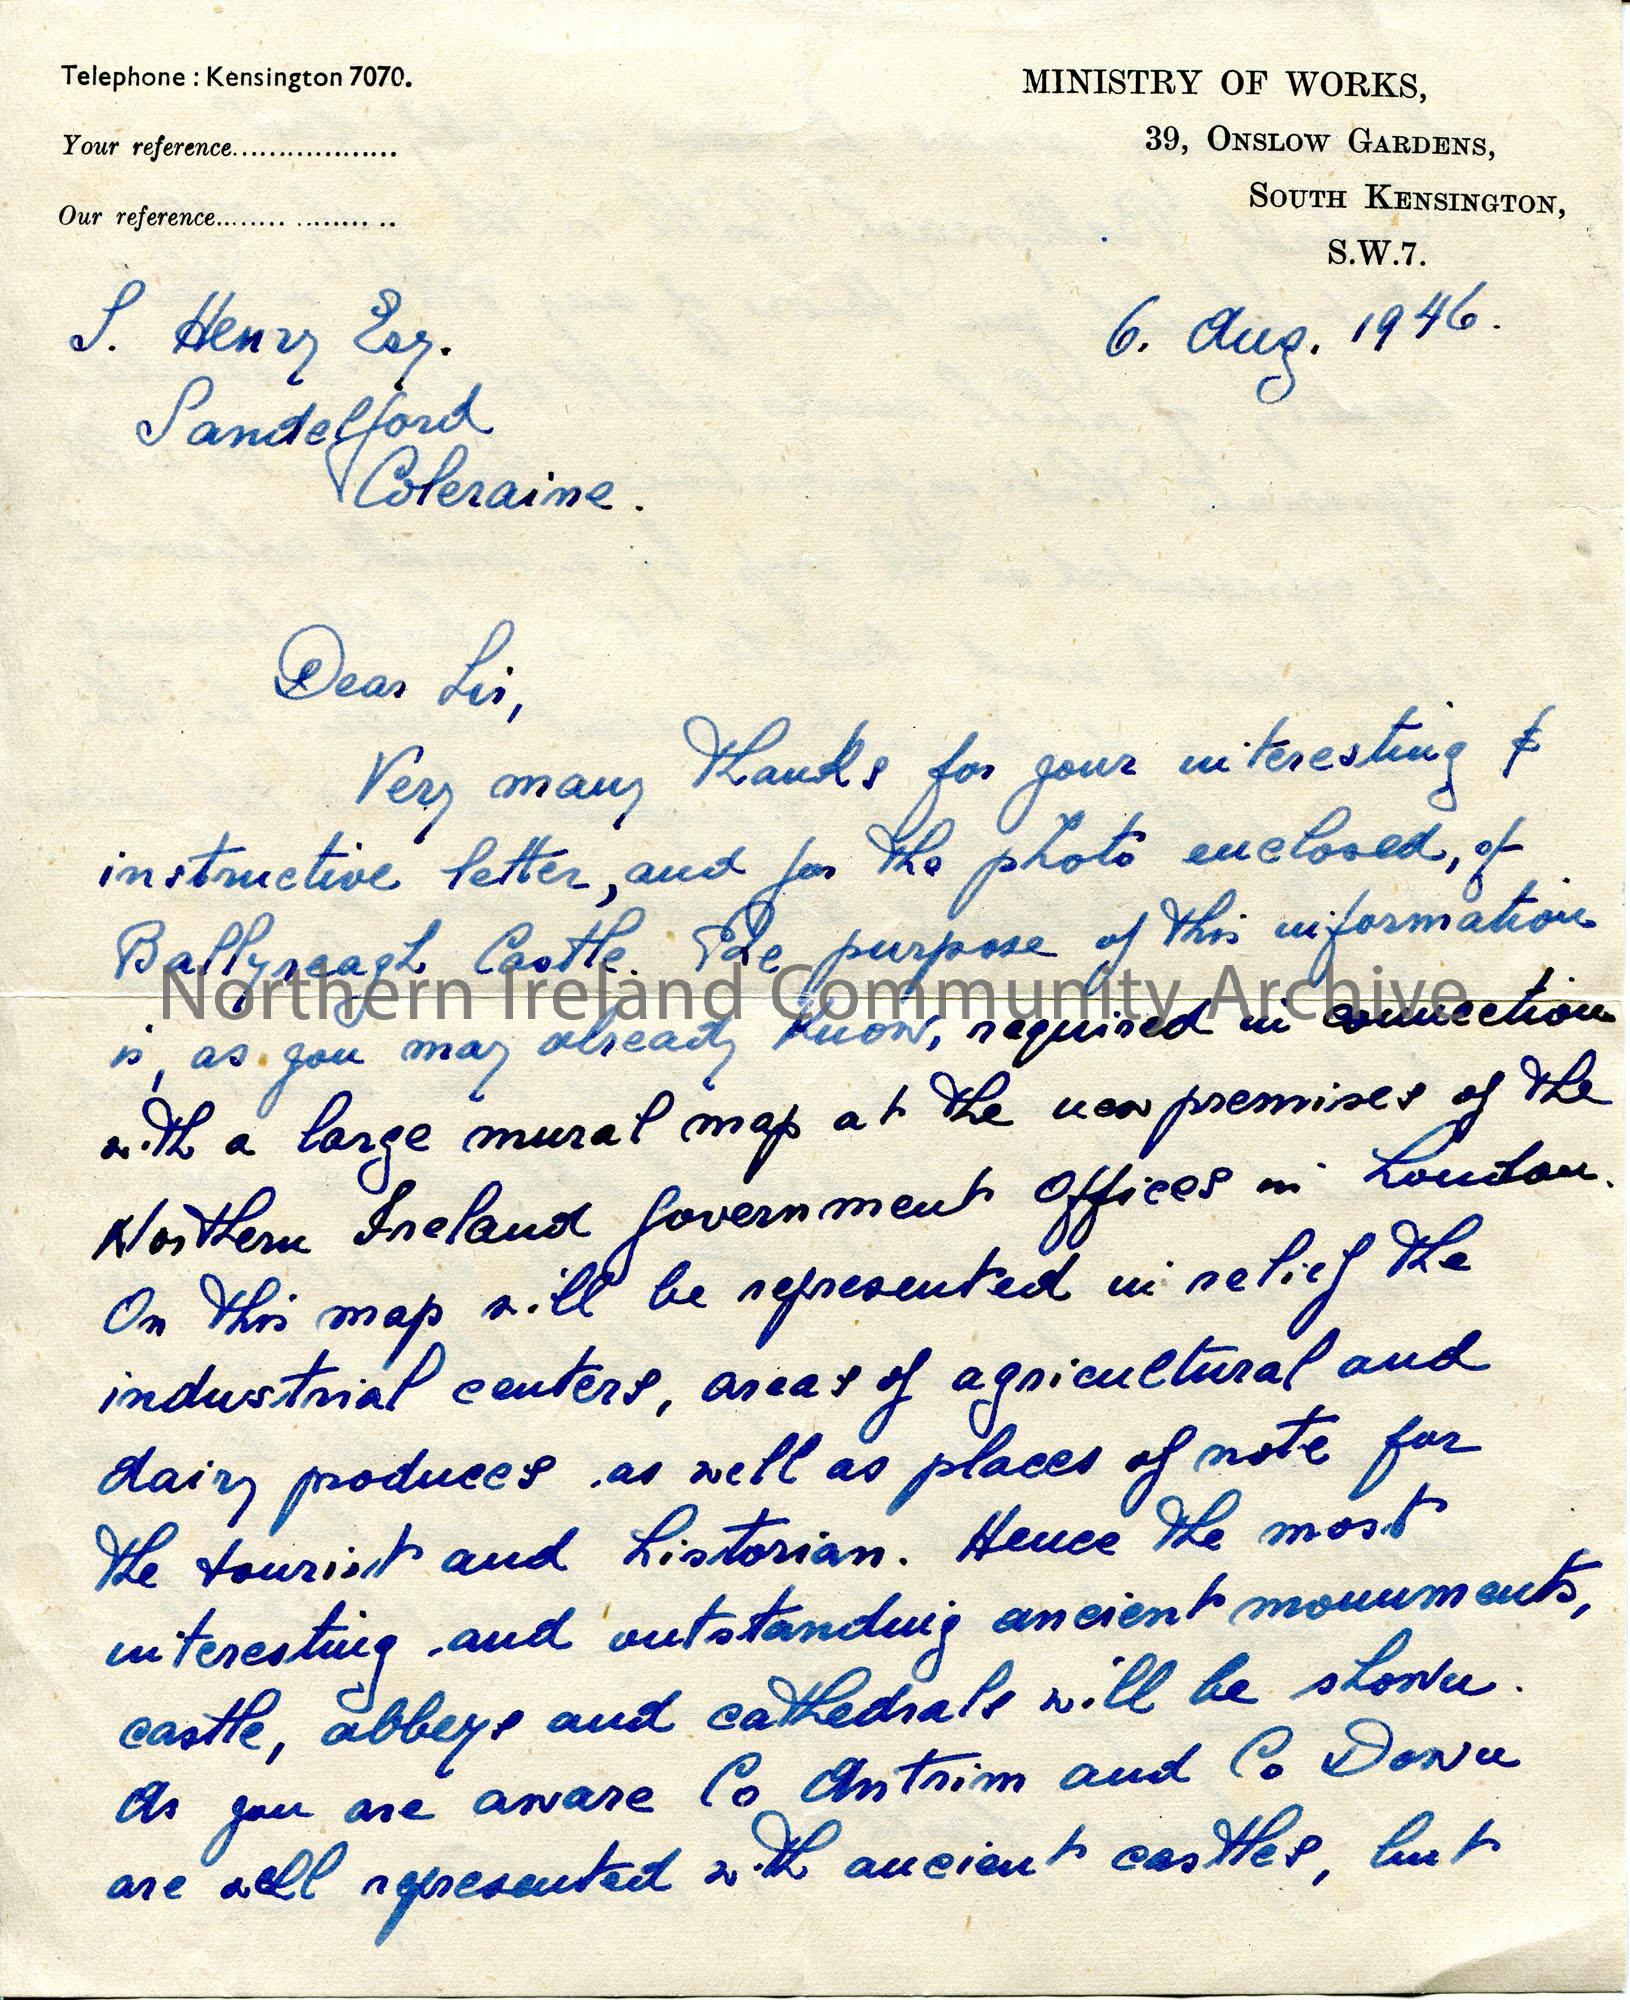 Telephone : Kensington 7070.
Your reference..................
Our reference........ ........ ..
MINISTRY OF WORKS,
39, ONSLOW GARDENS,
SOUTH KENSINGTON,
S.W.7.
6. Aug. 1946.
S. Henry Esq.
Sandelford
Coleraine.
Dear Sir,
Very many thanks for your interesting &
instructive letter, and for the photo enclosed, of
Ballyreagh Castle. The purpose of this information
is, as you may already know, required in connection
with a large mural map at the new premises of the
Northern Ireland Government Offices in London.
On this map will be represented in relief the
industrial centers, areas of agricultural and
dairy produces as well as places of note for
the tourist and historian. Hence the most
interesting and outstanding ancient monuments,
castle, abbeys and cathedrals will be shown.
As you are aware Co Antrim and Co Down
are well represented with ancient castles, but
Northern Ireland Community Archive